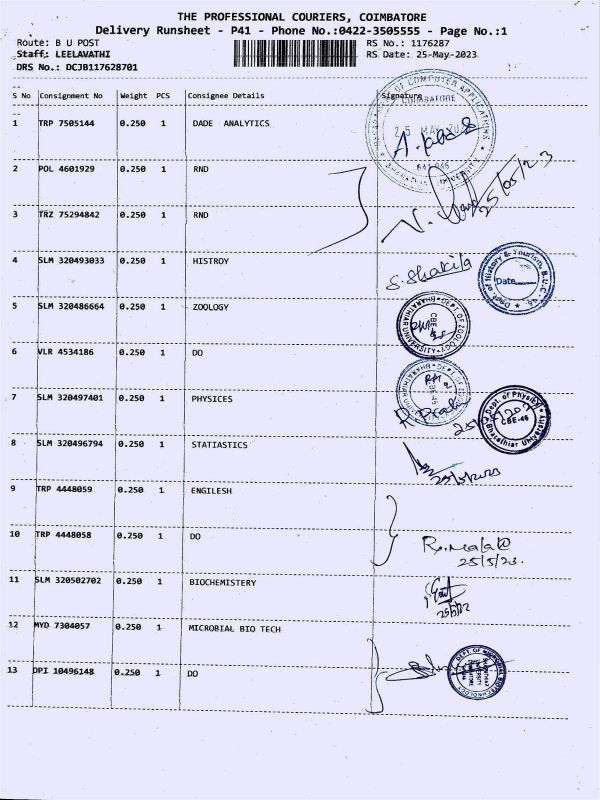 THE PROFESSIONAL COURIERS, COIMBATORE
Delivery Runsheet - P41 - Phone No.:0422-3505555 - Page No.:1
Route: B U POST RS No.: 1176287
Staff: LEELAVATHI RS Date: 25-May-2023
DRS No.: DCJB117628701
S No Consignment No Weight PCS Consignee Details Signature
1 TRP 7505144 0.250 1 DADE ANALYTICS
OF COMPUTER APPLICATIONS
COIMBATORE
25 MAY 20
641 046
2 POL 4601929 0.250 1 RND
25/05/23
3 TRZ 75294842 0.250 1 RND
4 SLM 320493033 0.250 1 HISTROY
S. Shakila
Dept of History & Tourism, B.U.C-46
Date
5 SLM 320486664 0.250 1 ZOOLOGY
DEPT. OF ZOOLOGY
BHARATHIAR UNIVERSITY
CBE-46
6 VLR 4534186 0.250 1 DO
7 SLM 320497401 0.250 1 PHYSICES
Dept. of Physics
CBE-46
Bharathiar University
8 SLM 320496794 0.250 1 STATIASTICS
25/5/2023
9 TRP 4448059 0.250 1 ENGILESH
10 TRP 4448058 0.250 1 DO
25/5/23.
11 SLM 320502702 0.250 1 BIOCHEMISTERY
12 MYD 7304057 0.250 1 MICROBIAL BIO TECH
13 DPI 10496148 0.250 1 DO
DEPT. OF MICROBIAL BIOTECHNOLOGY